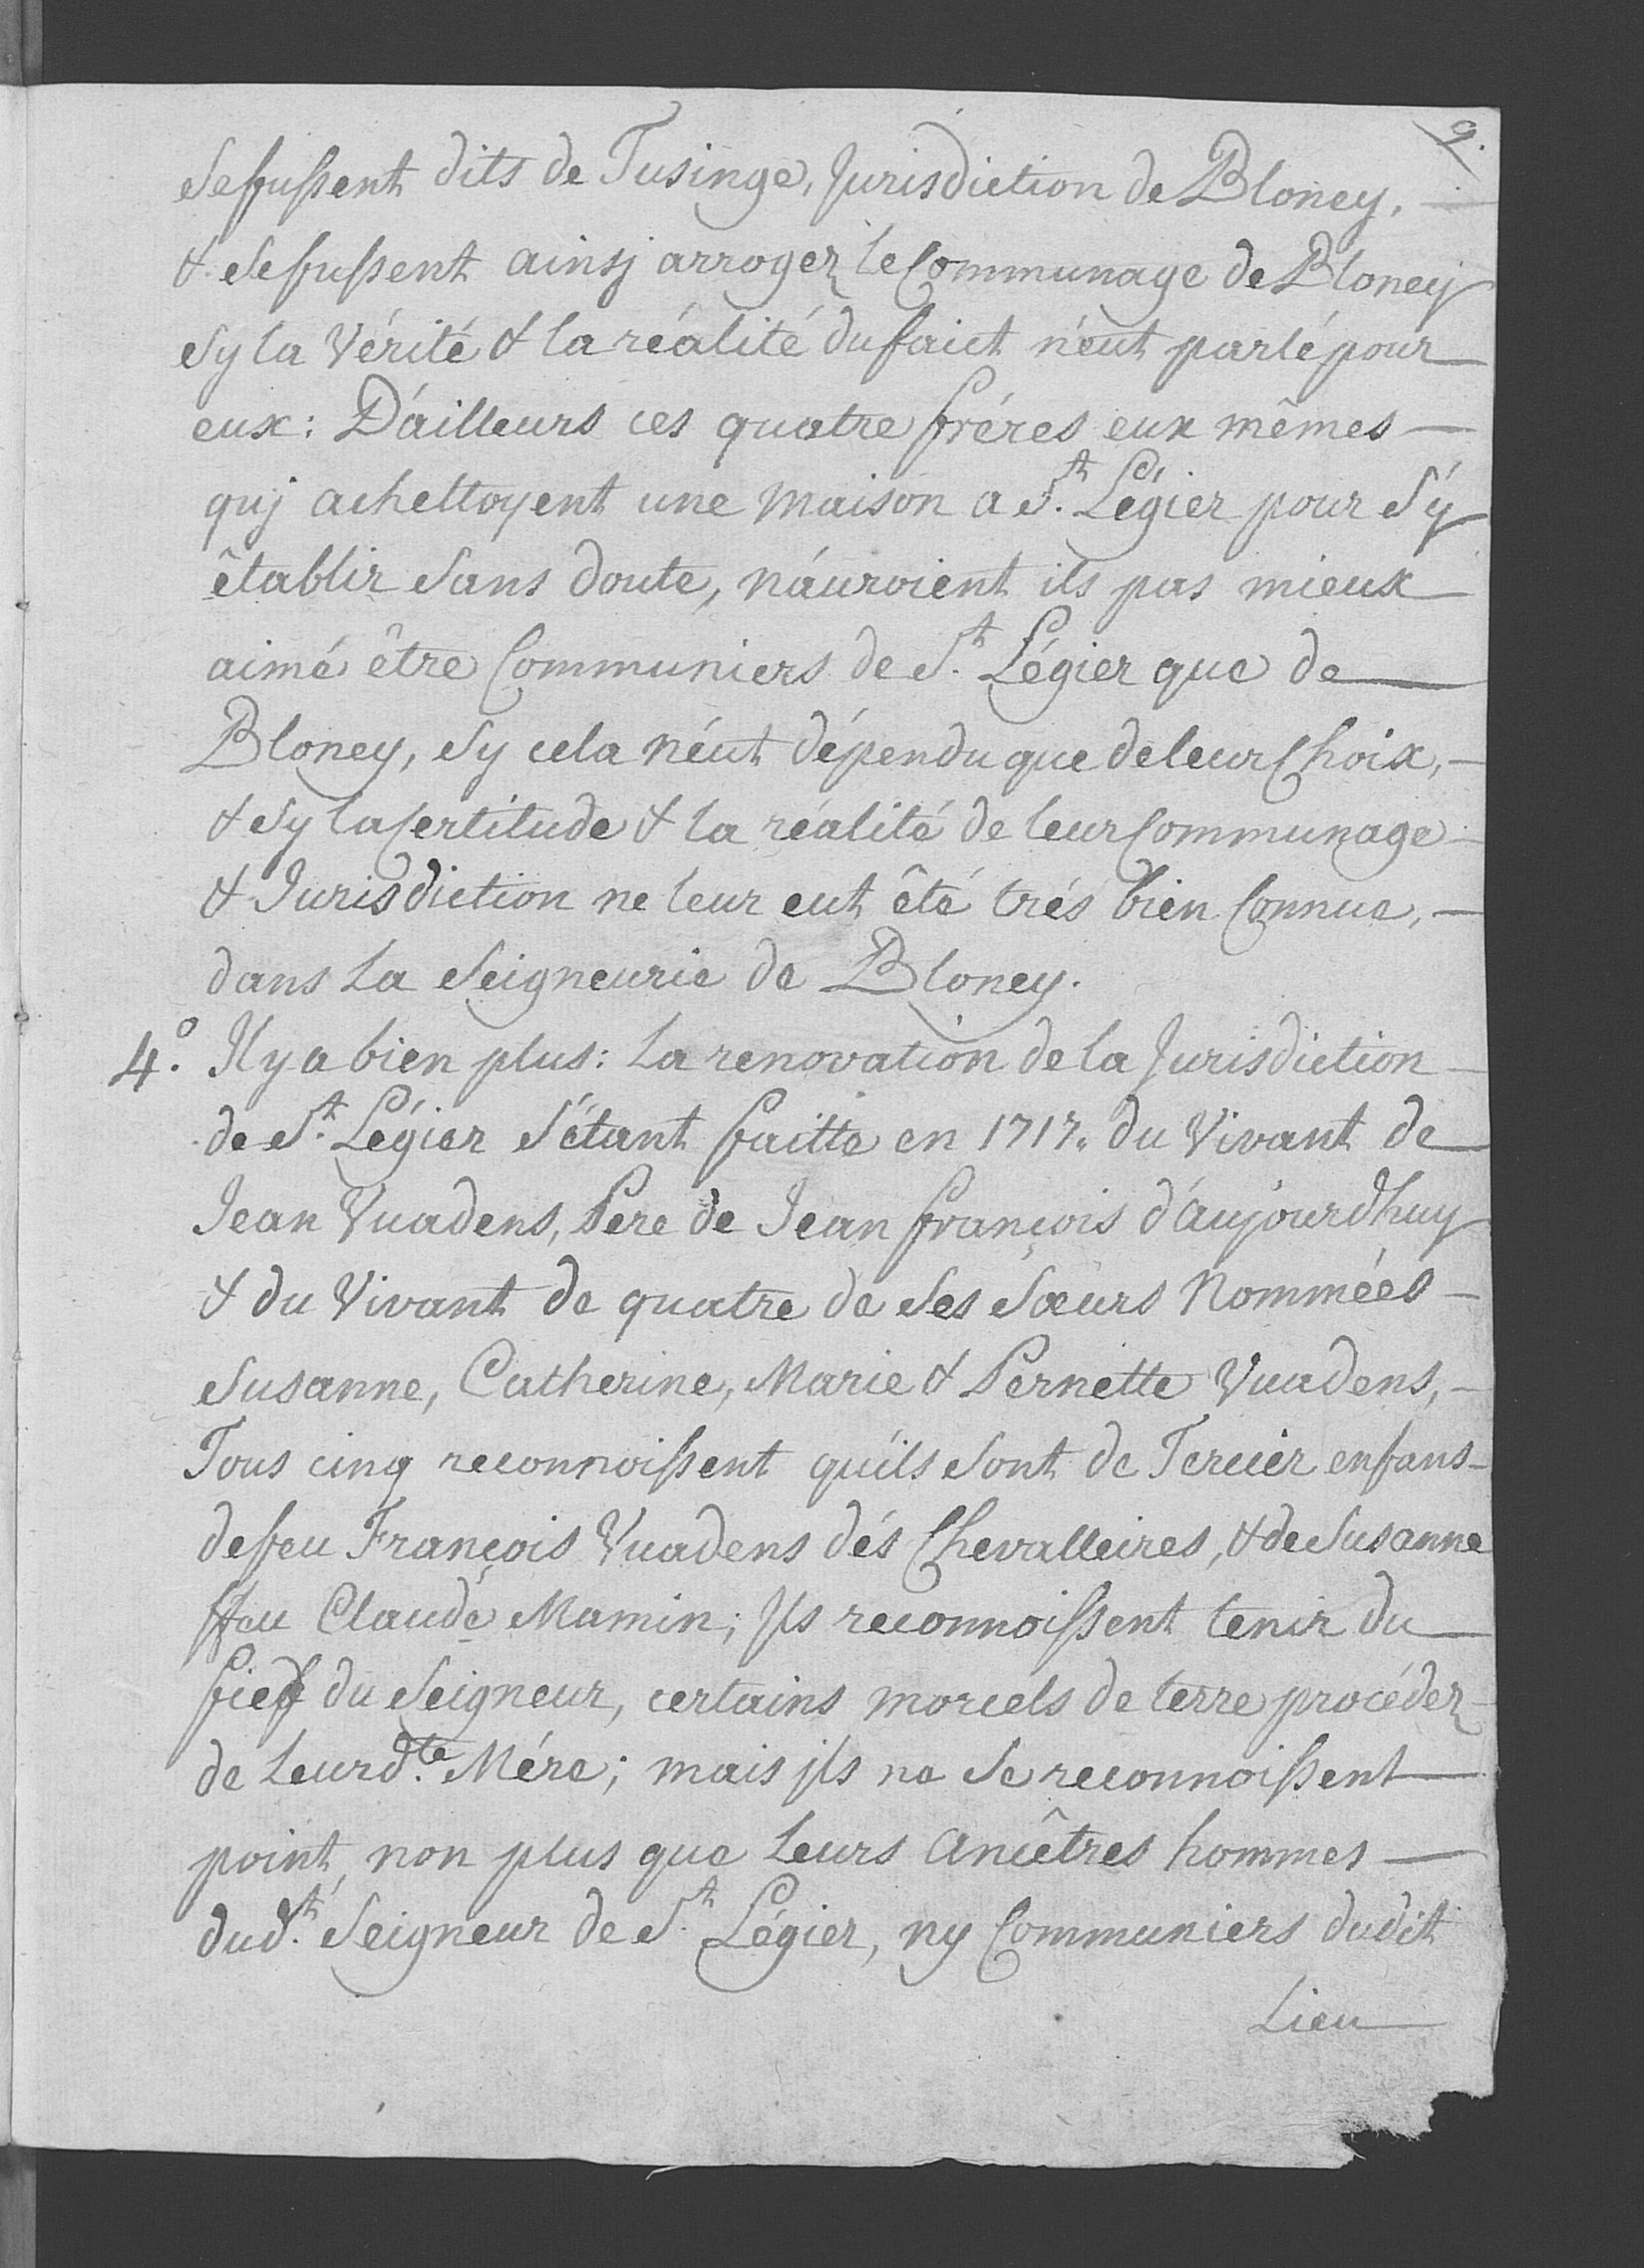 9.
Se fussent dits de Tusinge, Jurisdiction de Bloney,
& Se fussent ainsj arrogez le Communage de Bloney
Sy la Vérité & la réalité du faict n'eut parlé pour
eux: D'ailleurs ces quatre fréres eux mêmes
quj achettoyent une Maison a St. Légier pour S'y
êtablir Sans doute, n'auroient ils pas mieux
aimé être Communiers de St. Légier que de
Bloney, Sy cela n'éut dépendu que de leur Choix,
& Sy la Certitude & la réalité de leur Communage
& Jurisdiction ne leur eut êté trés bien Connue,
dans La Seigneurie de Bloney.
4.° Il y a bien plus: La renovation de la Jurisdiction
de St. Légier S'étant faitte en 1717. du Vivant de
Jean Vuadens, Pere de Jean françois d'aujourdhuy
& du Vivant de quatre de Ses Sœurs Nommées
Susanne, Catherine, Marie & Pernette Vuadens,
Tous cinq reconnoissent qu'ils Sont de Tercier enfans
de feu François Vuadens dés Chevalleires, & de Susanne
ffeu Claude Mamin; Jls reconnoissent tenir du
fief du Seigneur, certains morcels de terre procédez
de Leurdte. Mére; mais jls ne Se reconnoissent
point, non plus que Leurs Ancêtres hommes
dudt. Seigneur de St. Légier, ny Communiers dudit
Lieu